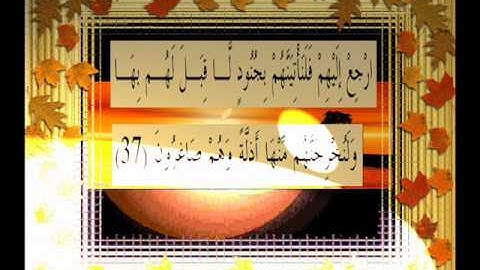 ارْجِعْ إِلَيْهِمْ فَلَنَأْتِيَنَّهُمْ بِجُنُودٍ لَّا قِبَلَ لَهُم بِهَا
وَلَنُخْرِجَنَّهُم مِّنْهَا أَذِلَّةً وَهُمْ صَاغِرُونَ (37)